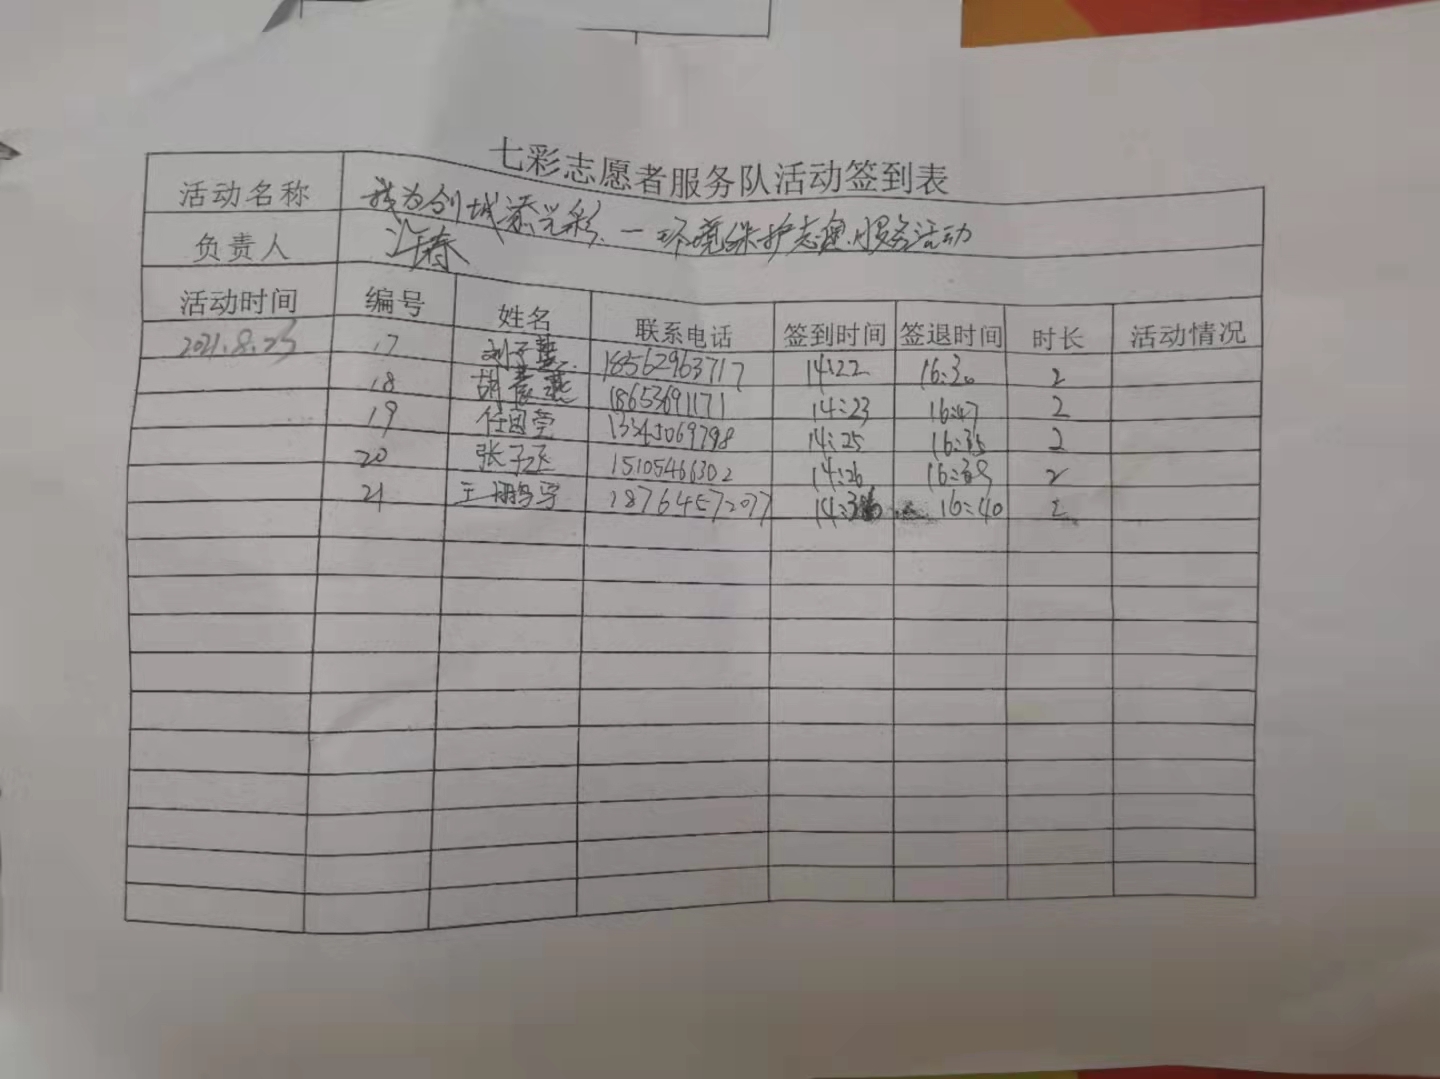 七彩志愿者服务队活动签到表
活动名称 我为创城添光彩、一环境保护志愿服务活动
负责人 春
活动时间 编号 姓名 联系电话 签到时间 签退时间 时长 活动情况
2021.8.23 17 刘子 18562963717 14:22 16:30 2
18 胡 燕 18653691171 14:23 16:47 2
19 任 莹 1334069798 14:25 16:35 2
20 张子丞 15105466302 14:26 16:39 2
21 王 宇 18764572077 14:3 16:40 2